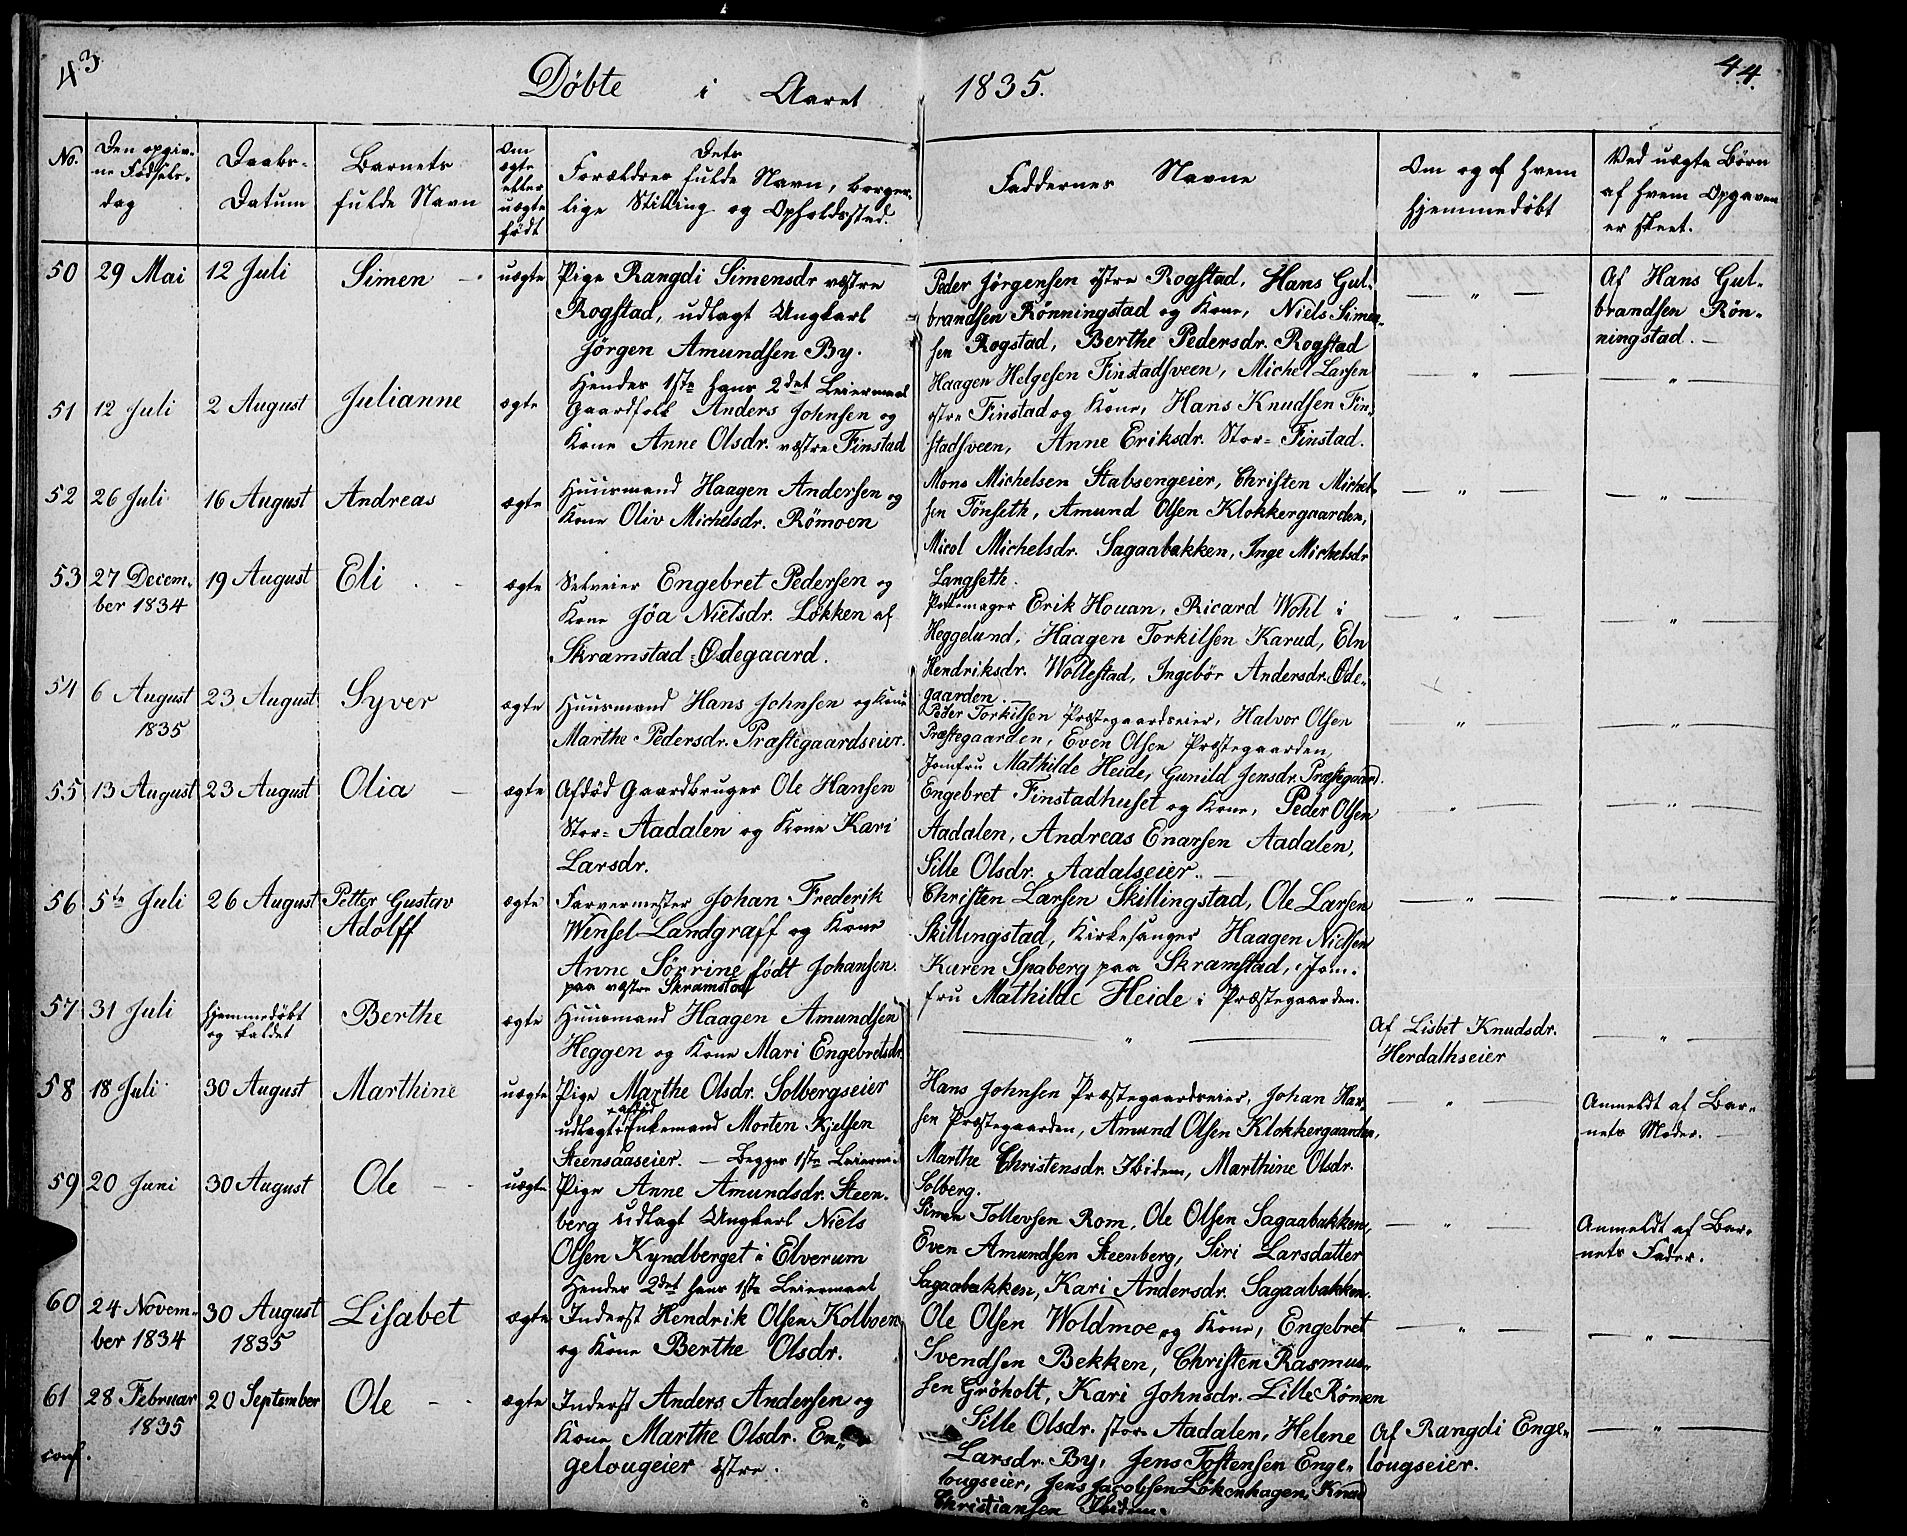 43.
Döbte i Aaret 1835.
44.
No.
Den opgiv-
ne Födsels-
dag
Daabs-
Datum
Barnets
fulde Navn
Om
ægte
eller
uægte
født
Dets
Forældres fulde Navn, borger-
lige Stilling og Opholdssted.
Faddernes Navne
Om og af hvem
hjemmedöbt
Ved uægte Börn
af hvem Opgaven
er skeet.
50
29 Mai
12 Juli
Simen -
uægte
Pige Rangdi Simensdr vestre
Rogstad, udlagt Ungkarl
Jörgen Amundsen By.
Hendes 1ste hans 2det Leiermaal
Peder Jörgensen östre Rogstad, Hans Gul-
brandsen Rönningstad og Kone, Niels Simen-
sen Rogstad, Berthe Pedersdr. Rogstad
— " —
Af Hans Gul-
brandsen Rön-
ningstad. —
51
12 Juli
2 August
Julianne
ægte
Gaardfolk Anders Johnsen og
Kone Anne Olsdr. vestre Finstad
Haagen Helgesen Finstadsveen, Michel Larsen
østre Finstad og Kone, Hans Knudsen Fin-
stadsveen, Anne Eriksdr. Stor- Finstad.
— " —
— " —
52
26 Juli
16 August
Andreas
ægte
Huusmand Haagen Andersen og
Kone Oliv Michelsdr. Römoen
Mons Michelsen Stabsengeier, Christen Michel-
sen Tönseth, Amund Olsen Klokkergaarden,
Micol Michelsdr. Sagaabakken, Inge Michelsdr
Langseth.
— " —
— " —
53
27 Decem-
ber 1834
19 August
Eli . -
ægte
Selveier Engebret Pedersen og
Kone Jöa Nielsdr. Lökken af
Skramstad-Ödegaard.
Pottemager Erik Houan, Ricard Wohl i
Heggelund, Haagen Torkilsen Karud, Eln
Hendriksdr. Wollestad, Ingebör Andersdr. Öde-
gaarden.
— " —
— " —
54
6 August
1835
23 August
Syver
ægte
Huusmand Hans Johnsen og Kone
Marthe Pedersdr. Præstegaardseier.
Peder Torkilsen Præstegaardseier, Halvor Olsen
Præstegaarden, Even Olsen Præstegaarden,
Jomfru Mathilde Heide, Gunild Jensdr. Præstegaard.
— " —
— " —
55
13 August
23 August
Olia -
ægte
Afdöd Gaardbruger Ole Hansen
Stor- Aadalen og Kone Kari
Larsdr.
Engebret Finstadhuset og Kone, Peder Olsen
Aadalen, Andreas Enarsen Aadalen,
Sille Olsdr. Aadalseier. —
— " —
— " —
56
5te Juli
26 August
Petter Gustav
Adolff
ægte
Farvermester Johan Frederik
Wensel Landgraff og Kone
Anne Sörrine födt Johansen.
paa vestre Skramstad
Christen Larsen Skillingstad, Ole Larsen
Skillingstad, Kirkesanger Haagen Nielsen
Karen Spaberg paa Skramstad, Jom-
fru Mathilde Heide i Præstegaarden.
— " —
— " —
57
31 Juli
hjemmedöbt
og kaldet
Berthe
ægte
Huusmand Haagen Amundsen
Heggen og Kone Mari Engebretsdr.
— " —
Af Lisbet Knudsdr.
Herdalhseier
— " —
58
18 Juli
30 August
Marthine
uægte
Pige Marthe Olsdr. Solbergseier
afdöd
udlagt Enkemand Morten Kjelsen
Steensaaseier. — Begges 1ste Leierm.
Hans Johnsen Præstegaardseier, Johan Han-
sen Præstegaarden, Amund Olsen Klokkergaarden,
Marthe Christensdr. Ibidem, Marthine Olsdr.
Solberg.
— " —
Anmeldt af Bar-
nets Moder. —
59
20 Juni
30 August
Ole - -
uægte
Pige Anne Amundsdr. Steen-
berg udlagt Ungkarl Niels
Olsen Kyndberget i Elverum
Hendes 2det hans 1ste Leiermaal
Simen Tollevsen Rom, Ole Olsen Sagaabakken,
Even Amundsen Steenberg, Siri Larsdatter
Sagaabakken, Kari Andersdr. Sagaabakken.
— " —
Anmeldt af Bar-
nets Fader.
60
24 Novem-
ber 1834
30 August
1835
Lisabet
ægte
Inderst Hendrik Olsen Kolboen
og Kone Berthe Olsdr.
Ole Olsen Woldmoe og Kone, Engebret
Svendsen Bekken, Christen Rasmus-
sen Gröholt, Kari Johnsdr. Lille Römen
— " —
— " —
61
conf.
28 Februar
1835
20 September
Ole - -
ægte
Inderst Anders Andersen og
Kone Marthe Olsdr. En-
gelougeier östre.
Sille Olsdr. store Aadalen, Helene
Larsdr. By, Jens Tostensen Enge-
lougseier, Jens Jacobsen Lökenhagen, Knud
Christiansen Ibidem.
Af Rangdi Enge-
lougseier.
— " —